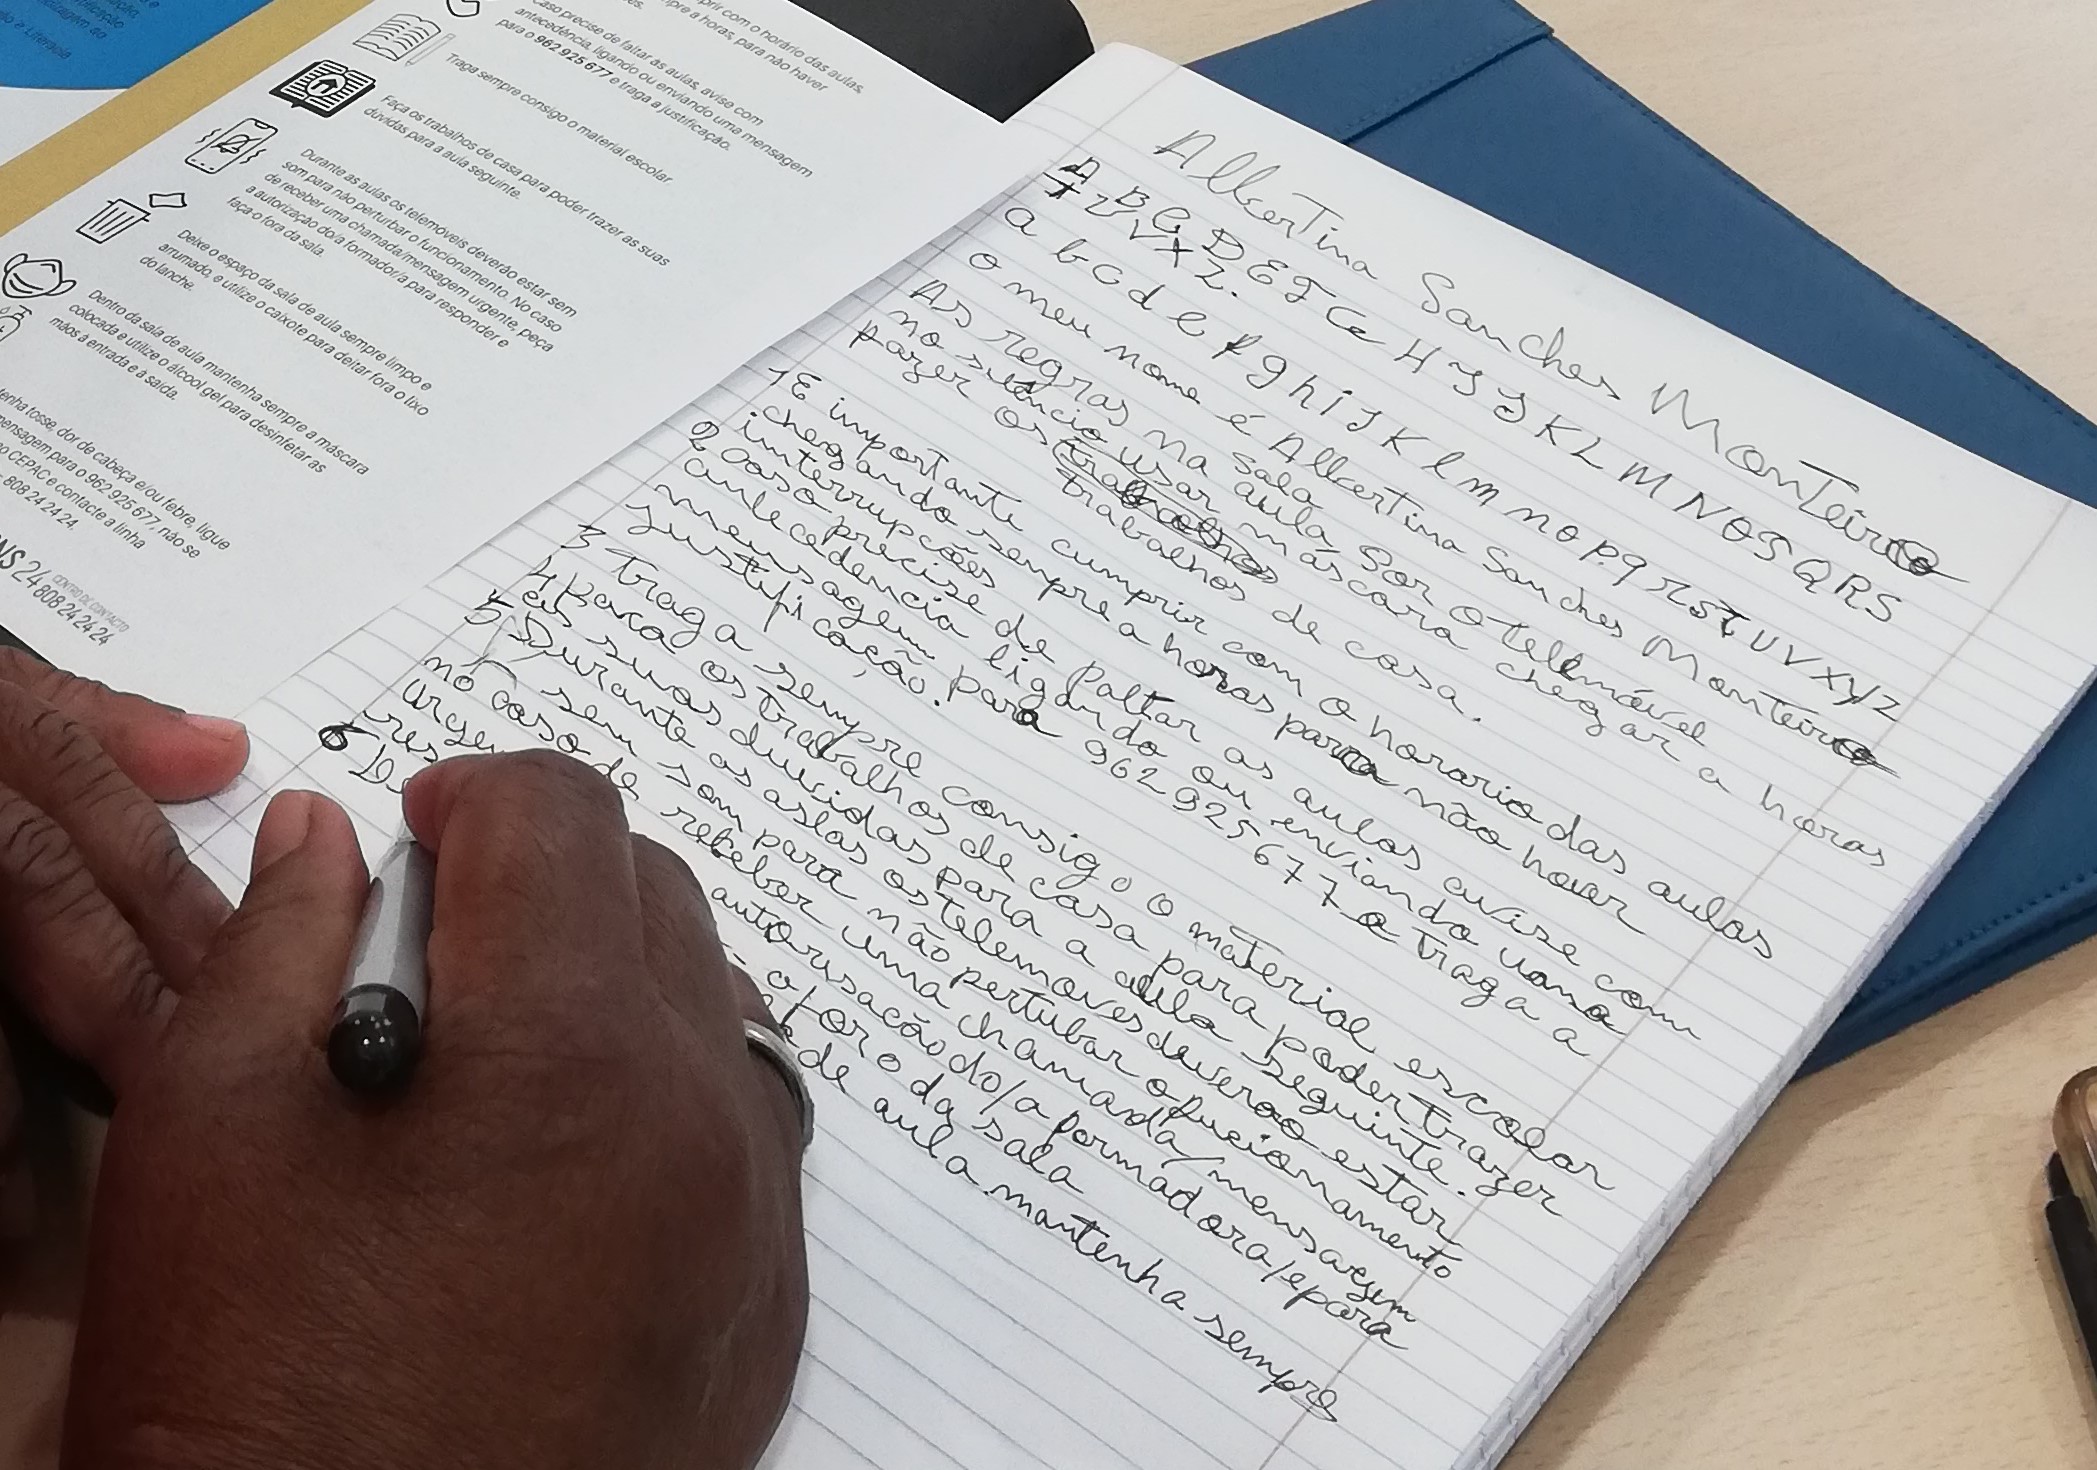 prir com o horário das aulas,
pre a horas, para não haver
Caso precise de faltar às aulas, avise com
antecedência, ligando ou enviando uma mensagem
para o 962 925 677 e traga a justificação.
Traga sempre consigo o material escolar.
Faça os trabalhos de casa para poder trazer as suas
dúvidas para a aula seguinte.
Durante as aulas os telemóveis deverão estar sem
som para não perturbar o funcionamento. No caso
de receber uma chamada/mensagem urgente, peça
a autorização do/a formador/a para responder e
faça-o fora da sala.
Deixe o espaço da sala de aula sempre limpo e
arrumado, e utilize o caixote para deitar fora o lixo
do lanche.
Dentro da sala de aula mantenha sempre a máscara
colocada e utilize o álcool gel para desinfetar as
mãos à entrada e à saída.
tenha tosse, dor de cabeça e/ou febre, ligue
mensagem para o 962 925 677, não se
o CEPAC e contacte a linha
808 24 24 24.
NS 24
CENTRO DE CONTACTO
808 24 24 24
e Literacia
Albertina Sanches Monteiro
A B C D E F G H I J K L M N O S Q R S
T U V X Z.
a b c d e f g h i j K l m n o p. q r s t u v x y z
o meu nome é Albertina Sanches Monteiro
As regras na sala Sor o telemável
no silêncio usar máscara chegar a horas
fazer os trabalhos de casa.
1 E importante cumprir com o horario das aulas
chegando sempre a horas para não haver
interrupcões
2 caso precise de faltar as aulas avise com
antecedencia ligando ou enviando uma
mensagem para 962 925 677 e traga a
justificação.
3 traga sempre consigo o material escolar
4 para os trabalhos de casa para poder trazer
as suas duvidas para a aula seguinte.
5 Durante as aslas os telemoves deverao estar
sem som para não pertubar o fucionamento
no caso de receber uma chamada/mensagem
autorisacão do/a formadora/e para
o foro da sala
6 De de aula mantenha sempre